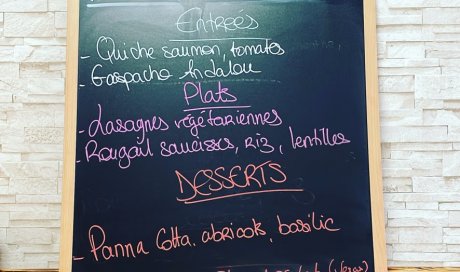 Entrées
- Quiche saumon, tomates
- Gaspacho Andalou
Plats
- Lasagnes végétariennes
- Rougail saucisses, riz, lentilles
DESSERTS
- Panna Cotta, abricots, basilic